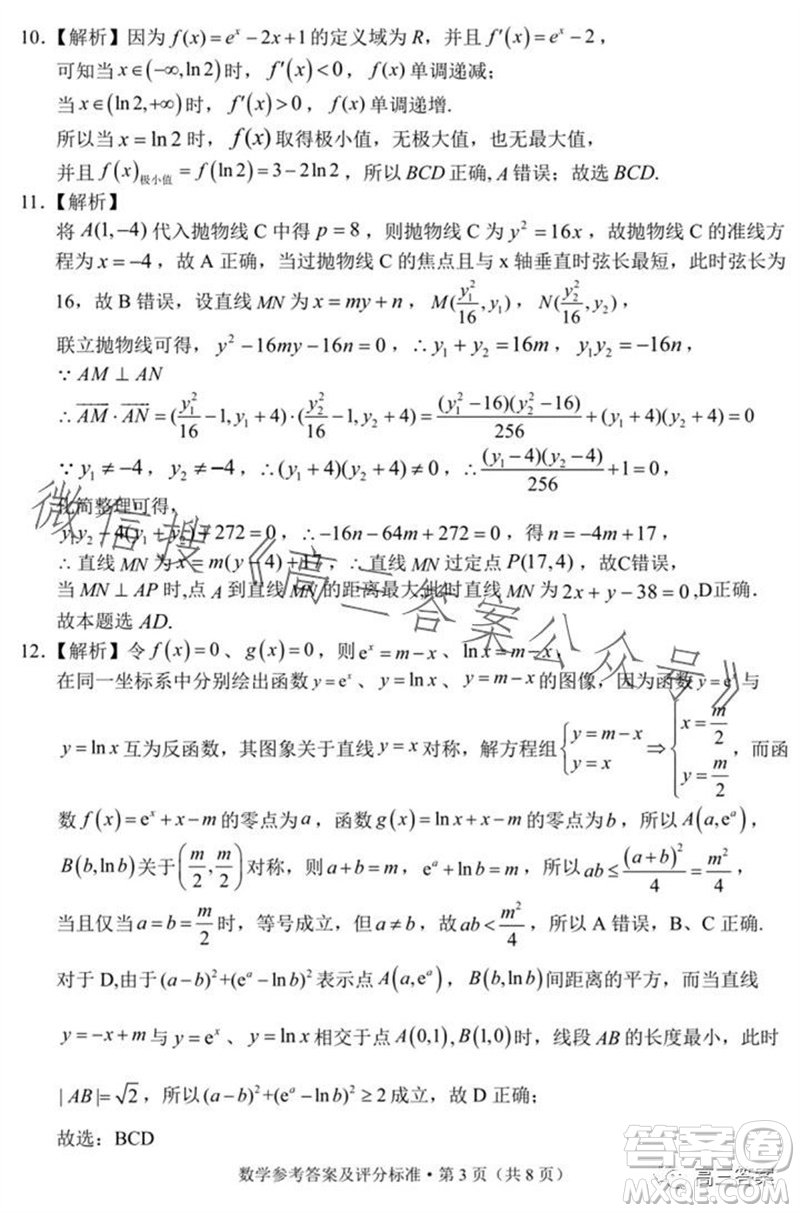 10.【解析】因为 f(x)=e^x−2x+1 的定义域为 R，并且 f′(x)=e^x−2，
可知当 x∈(−∞,ln2) 时， f′(x)<0， f(x) 单调递减；
当 x∈(ln2,+∞) 时， f′(x)>0， f(x) 单调递增.
所以当 x=ln2 时， f(x) 取得极小值，无极大值，也无最大值，
并且 f(x)极小值=f(ln2)=3−2ln2，所以 BCD 正确, A 错误；故选 BCD.
11.【解析】
将 A(1,−4) 代入抛物线 C 中得 p=8，则抛物线 C 为 y²=16x，故抛物线 C 的准线方
程为 x=−4，故 A 正确，当过抛物线 C 的焦点且与 x 轴垂直时弦长最短，此时弦长为
16，故 B 错误，设直线 MN 为 x=my+n， M(y₁²/16,y₁)， N(y₂²/16,y₂)，
联立抛物线可得， y²−16my−16n=0，∴y₁+y₂=16m， y₁y₂=−16n，
∵AM⊥AN
∴AM·AN=(y₁²/16−1,y₁+4)·(y₂²/16−1,y₂+4)=(y₁²−16)(y₂²−16)/256+(y₁+4)(y₂+4)=0
∵y₁≠−4， y₂≠−4，∴(y₁+4)(y₂+4)≠0，∴(y₁−4)(y₂−4)/256+1=0，
化简整理可得，
y₁y₂−4(y₁+y₂)+272=0，∴−16n−64m+272=0，得 n=−4m+17，
∴直线 MN 为 x=m(y−4)+17，∴直线 MN 过定点 P(17,4)，故C错误，
当 MN⊥AP 时,点 A 到直线 MN 的距离最大,此时直线 MN 为 2x+y−38=0 ,D正确.
故本题选 AD.
12.【解析】令 f(x)=0、g(x)=0，则 e^x=m−x、lnx=m−x，
在同一坐标系中分别绘出函数 y=e^x、y=lnx、y=m−x 的图像，因为函数 y=e^x 与
y=lnx 互为反函数，其图象关于直线 y=x 对称，解方程组{y=m−x, y=x ⇒ {x=m/2, y=m/2，而函
数 f(x)=e^x+x−m 的零点为 a，函数 g(x)=lnx+x−m 的零点为 b，所以 A(a,e^a)，
B(b,lnb) 关于 (m/2,m/2) 对称，则 a+b=m， e^a+lnb=m，所以 ab≤(a+b)²/4=m²/4，
当且仅当 a=b=m/2 时，等号成立，但 a≠b，故 ab<m²/4，所以 A 错误，B、C 正确.
对于 D,由于 (a−b)²+(e^a−lnb)² 表示点 A(a,e^a)， B(b,lnb) 间距离的平方，而当直线
y=−x+m 与 y=e^x、y=lnx 相交于点 A(0,1),B(1,0) 时，线段 AB 的长度最小，此时
|AB|=√2，所以 (a−b)²+(e^a−lnb)²≥2 成立，故 D 正确；
故选：BCD
数学参考答案及评分标准·第 3 页（共 8 页）
微信搜《高三答案公众号》
高三答案
答案圈
MXQE.COM